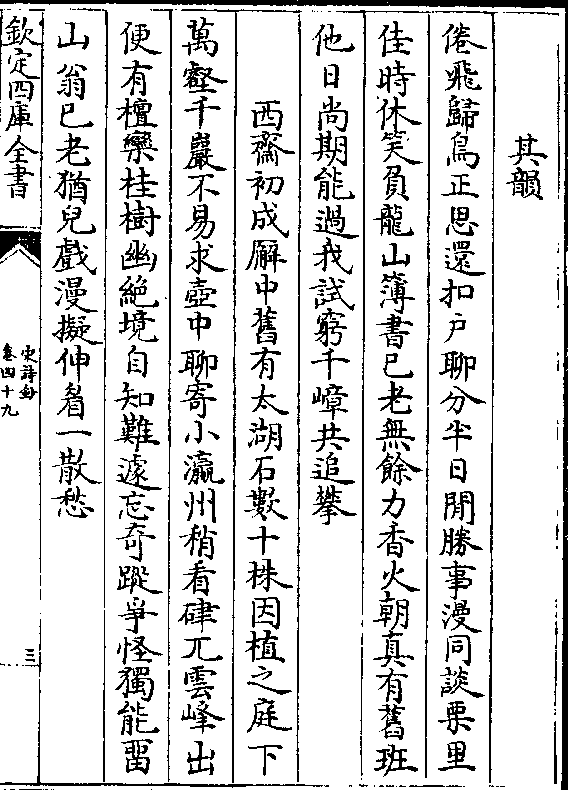 其韻
倦飛歸鳥正思還扣戶聊分半日閒勝事漫同談栗里
佳時休笑負龍山簿書已老無餘力香火朝真有舊班
他日尚期能過我試窮千嶂共追攀
西齋初成廨中舊有太湖石數十株因植之庭下
萬壑千巖不易求壺中聊寄小瀛州稍看硉兀雲峰出
便有檀欒桂樹幽絶境自知難遽忘奇蹤爭怪獨能畱
山翁已老猶兒戲漫擬伸眉一散愁
欽定四庫全書
宋詩鈔
卷四十九
三